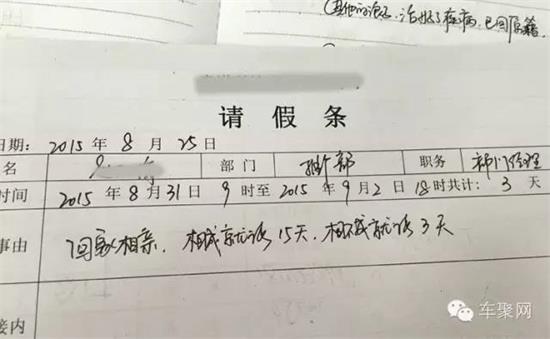 已回原籍
请假条
日期: 2015年8月25日
名 部门 推广部 职务 部门经理
时间 2015年8月31日9时至2015年9月2日18时共计: 3天
事由 回家相亲, 相成就请15天, 相不成就请3天
接内
车聚网